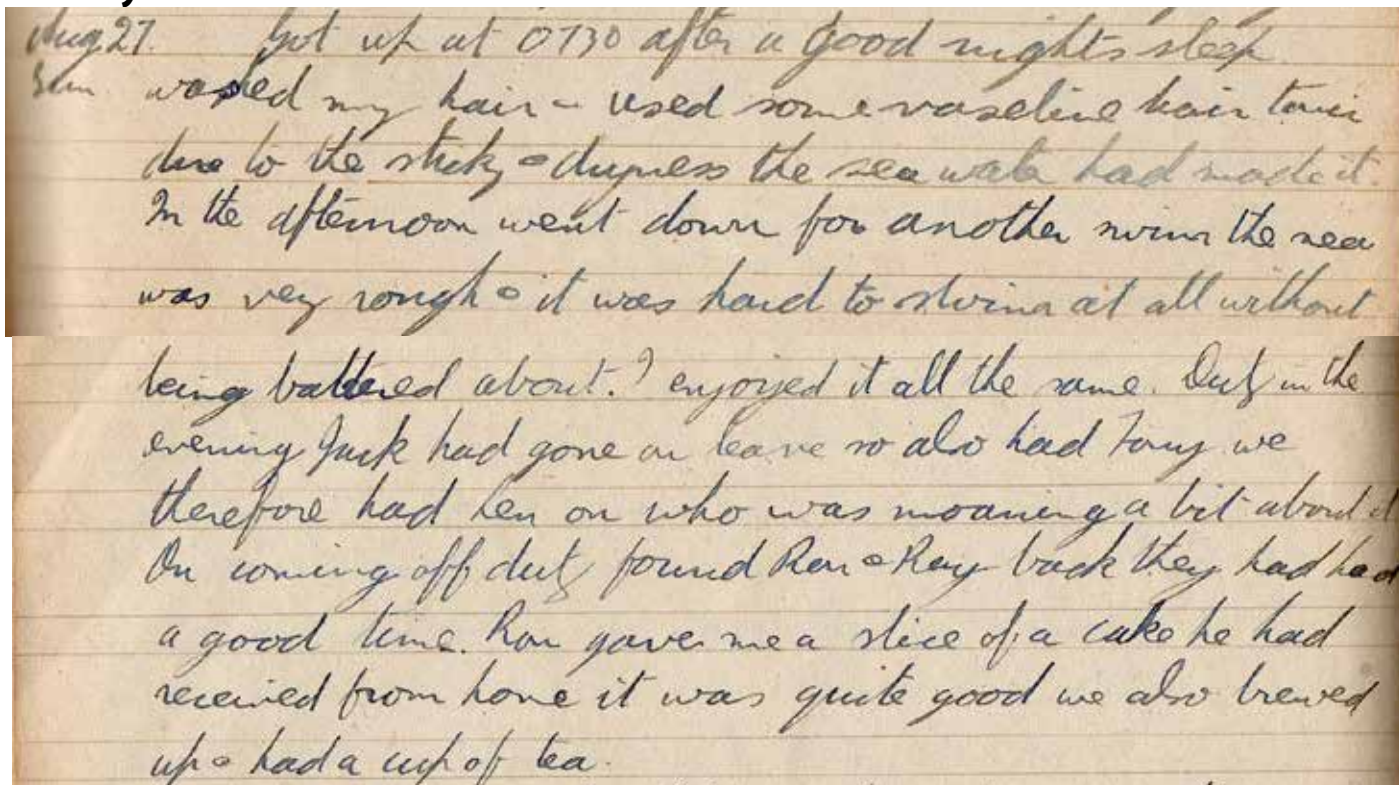 Aug 27. Got up at 0730 after a good nights sleep
Sun wased my hair & used some vaseline hair tonic
due to the sticky & dryness the sea water had made it.
In the afternoon went down for another swim the sea
was very rough & it was hard to swim at all without
being battered about. I enjoyed it all the same. Duty in the
evening Jack had gone on leave so also had Tony we
therefore had Len on who was moaning a bit about it
On coming off duty found Ron & Ray back they had had
a good time. Ron gave me a slice of a cake he had
received from home it was quite good we also brewed
up & had a cup of tea.